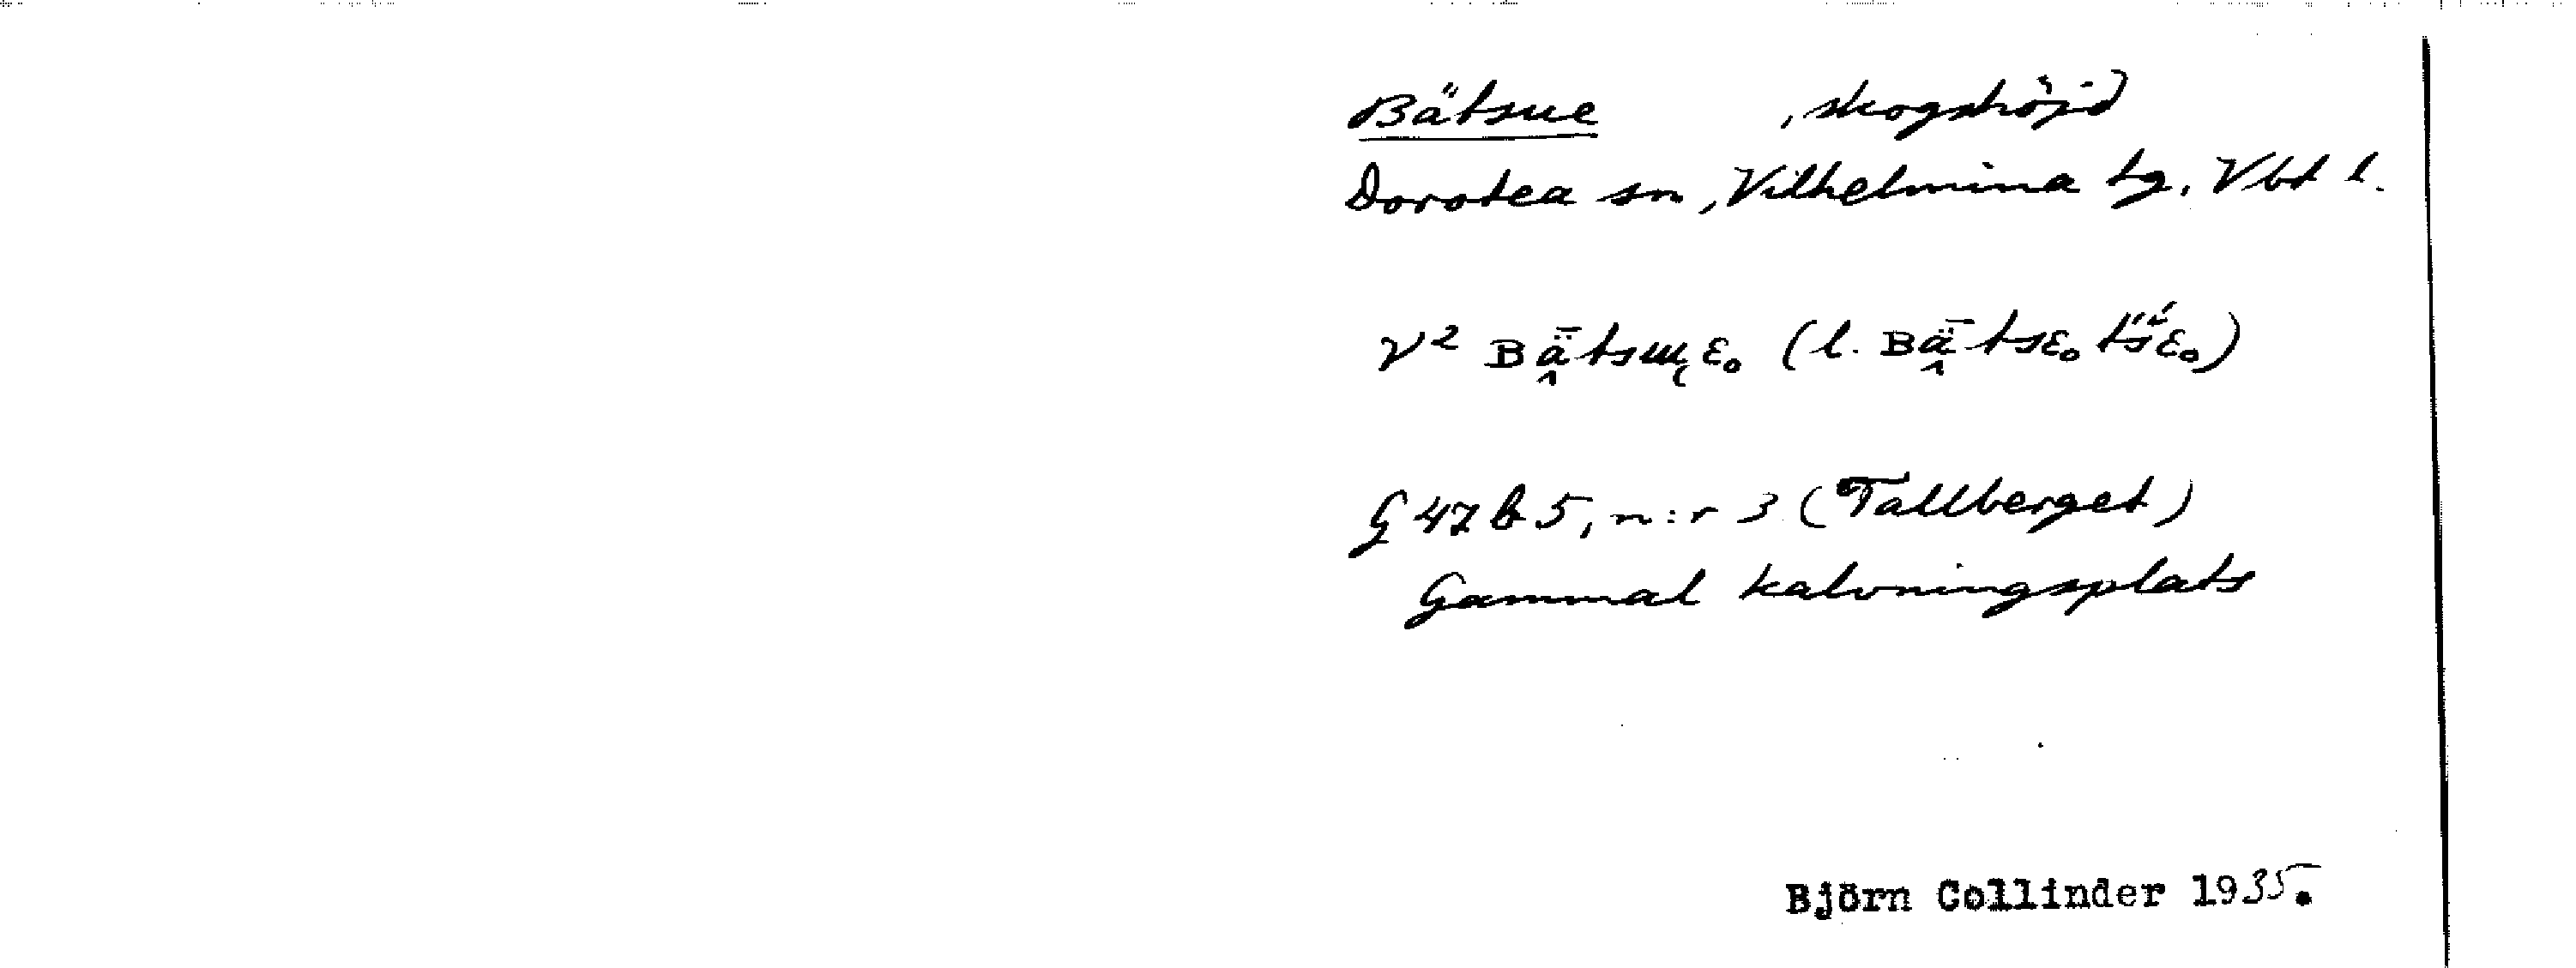 Bätsue , skogshöjd
Dorotea sn, Vilhelmina tg, Vbt l.
V² Bǟ̭tsɯ̨ɛ₀ (l. Bǟ̭tsɛ₀
G 47 b 5, n:r 3 (Tallberget)
Gammal kalvningsplats
Björn Collinder 1935.